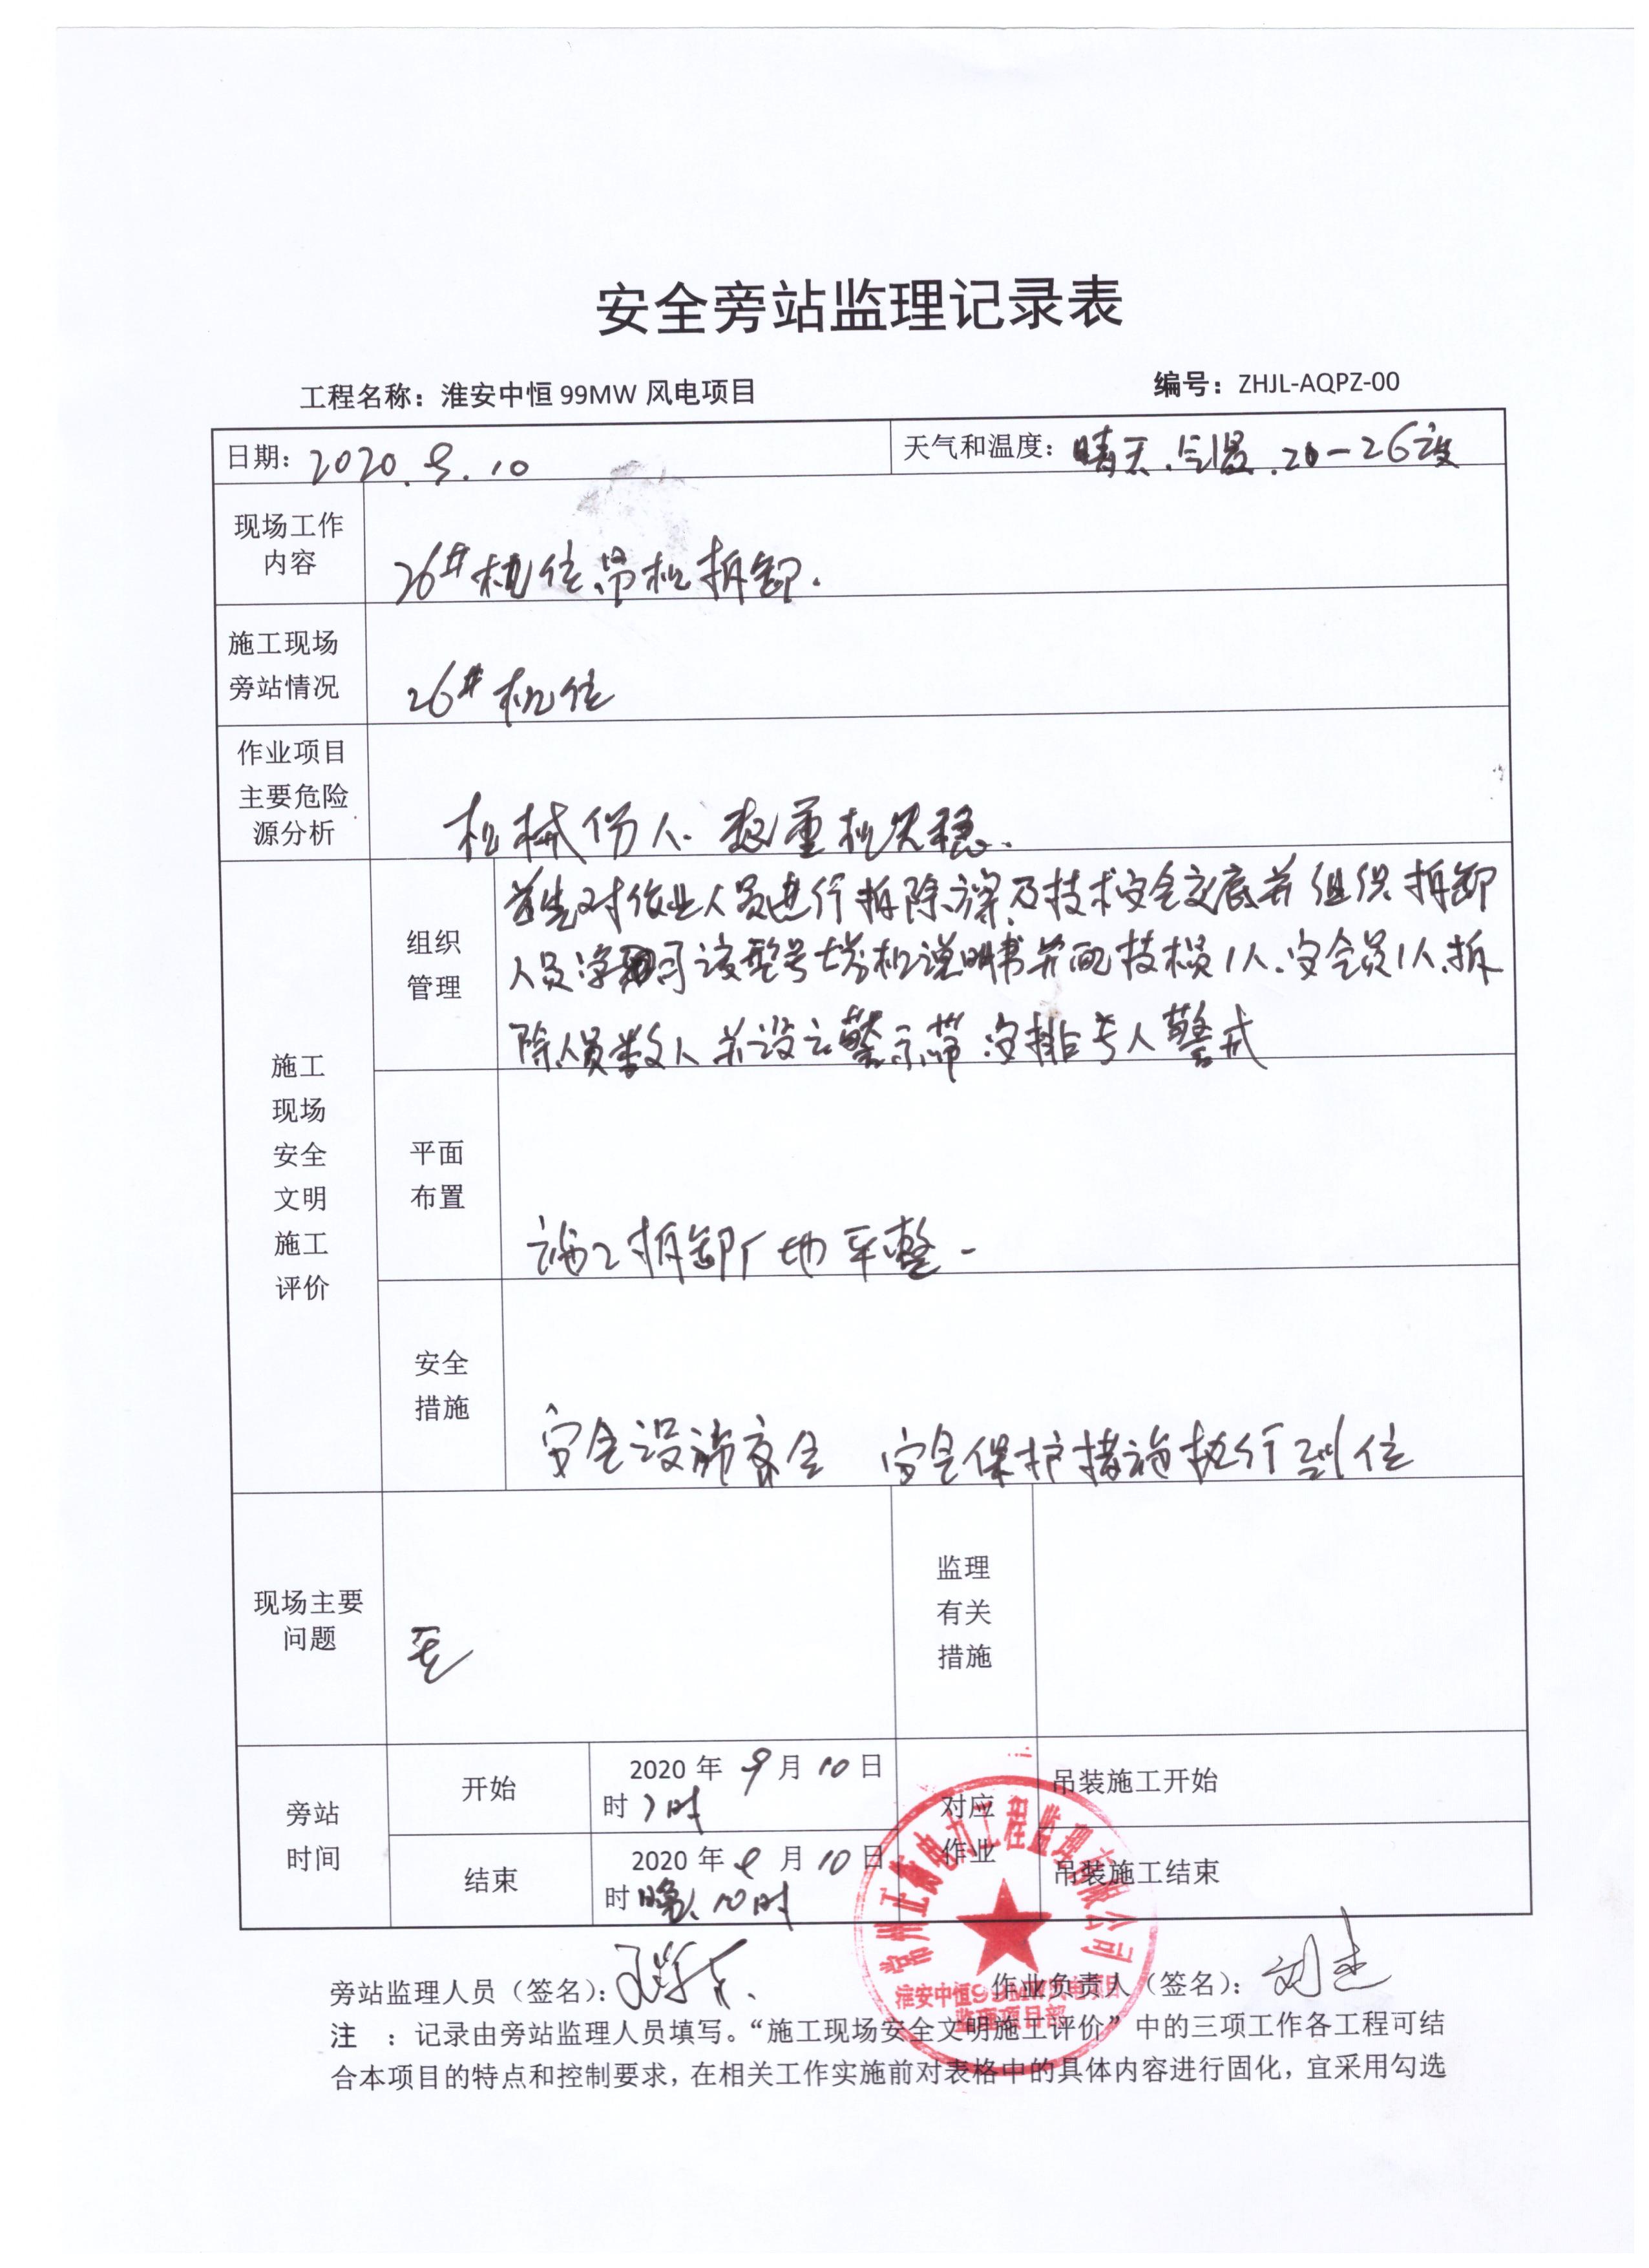 安全旁站监理记录表
工程名称：淮安中恒 99MW 风电项目 编号：ZHJL-AQPZ-00
日期：2020.9.10 天气和温度：晴天.气温.20-26度
现场工作
内容
26#机位吊机拆卸.
施工现场
旁站情况
26#机位
作业项目
主要危险
源分析
机械伤人.起重机失稳.
施工
现场
安全
文明
施工
评价
组织
管理
首先对作业人员进行拆除方案及技术安全交底并组织拆卸
人员学习该型号塔机说明书并配技术员1人.安全员1人.拆
除人员数人并设立警示带安排专人警戒
平面
布置
施工拆卸广地平整
安全
措施
安全设施齐全 安全保护措施执行到位
现场主要
问题
无
监理
有关
措施
旁站
时间
开始
2020 年 9 月 10 日
时 7时
结束
2020 年 9 月 10 日
时 晚.10时
对应
作业
吊装施工开始
吊装施工结束
常州正衡电力工程监理有限公司
淮安中恒99MW风电项目
监理项目部
旁站监理人员（签名）：
作业负责人（签名）：刘杰
注 ：记录由旁站监理人员填写。“施工现场安全文明施工评价”中的三项工作各工程可结
合本项目的特点和控制要求，在相关工作实施前对表格中的具体内容进行固化，宜采用勾选